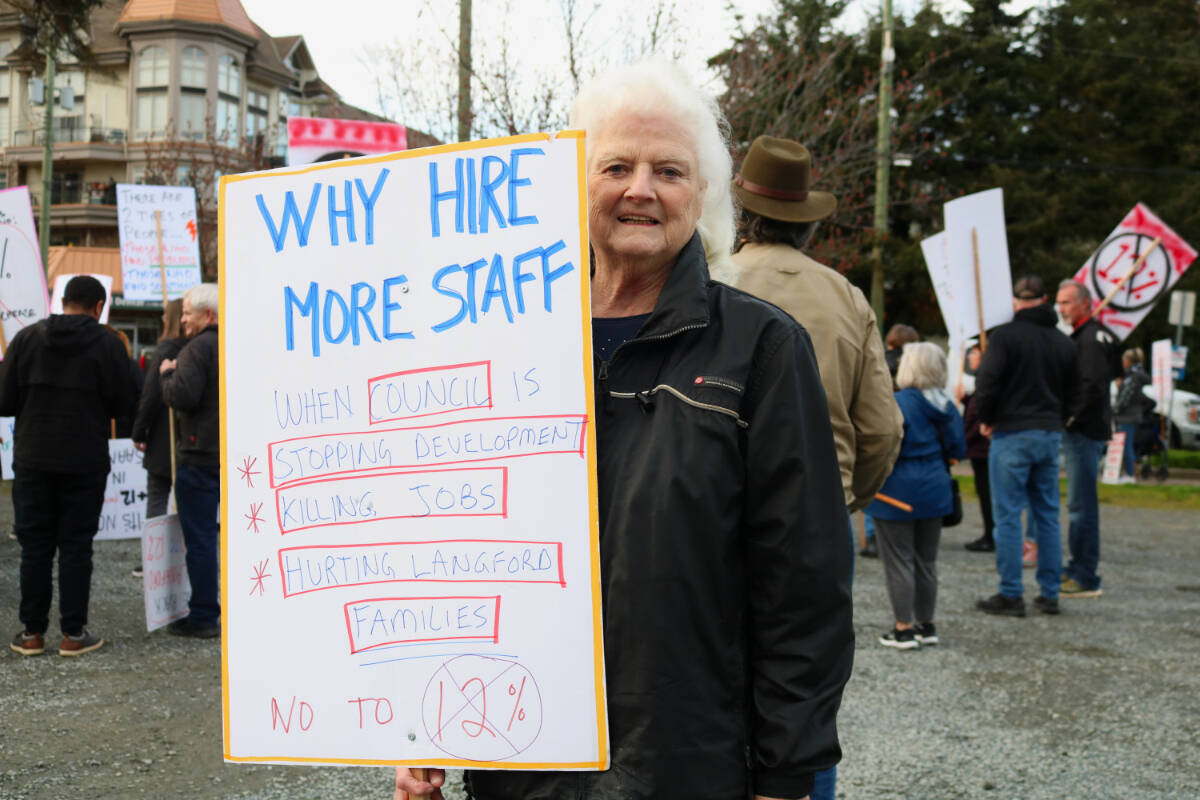 WHY HIRE
MORE STAFF
WHEN COUNCIL IS
* STOPPING DEVELOPMENT
* KILLING JOBS
* HURTING LANGFORD
FAMILIES
NO TO 12%
THERE ARE
2 TYPES OF
PEOPLE...
12%